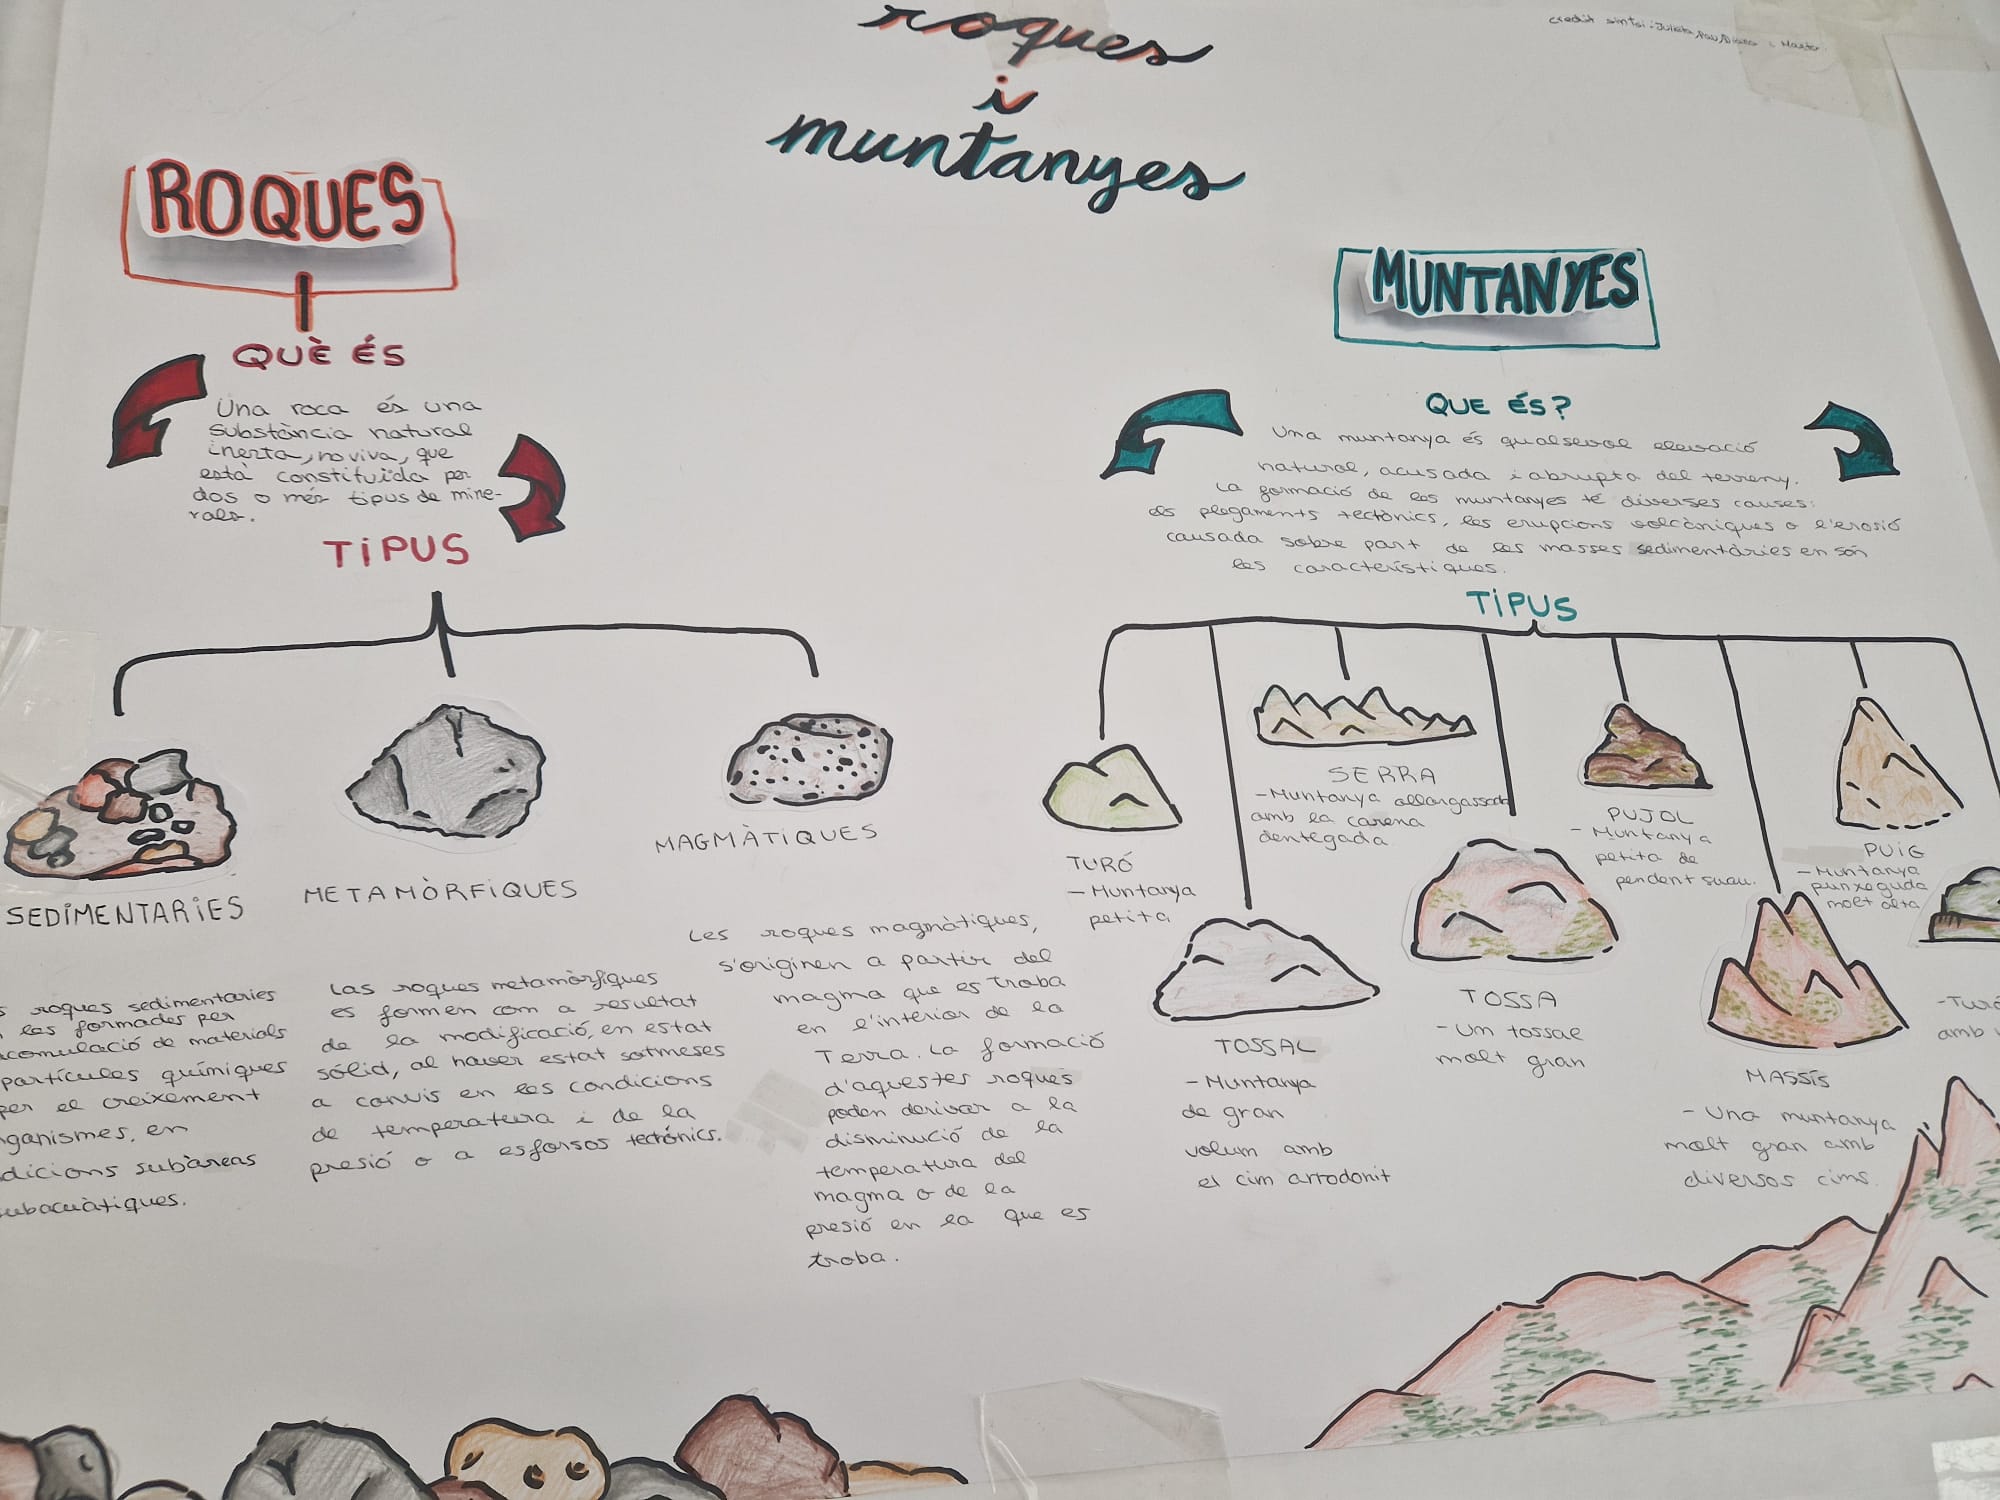 roques
i
muntanyes
ROQUES
QUÈ ÉS
Una roca és una
substància natural
inerta, no viva, que
està constituïda per
dos o més tipus de mine-
rals.
TIPUS
SEDIMENTARIES
roques sedimentaries
les formades per
acomulació de materials
partícules químiques
per el creixement
en
subàreas
METAMÒRFIQUES
Las roques metamòrfiques
es formen com a resultat
de la modificació, en estat
sólid, al haver estat sotmeses
a canvis en les condicions
de temperatura i de la
presió o a esforsos tectónics.
MAGMÀTIQUES
Les roques magmàtiques,
s'originen a partir del
magma que es troba
en l'interior de la
Terra. La formació
d'aquestes roques
poden derivar a la
disminució de la
temperatura del
magma o de la
presió en la que es
troba.
MUNTANYES
QUE ÉS?
Una muntanya és qualsevol elevació
natural, acusada i abrupta del terreny.
La formació de les muntanyes té diverses causes:
els plegaments tectònics, les erupcions volcàniques o l'erosió
causada sobre part de les masses sedimentàries en són
les característiques.
TIPUS
TURÓ
- Muntanya
petita
TOSSAL
- Muntanya
de gran
volum amb
el cim arrodonit
SERRA
- Muntanya allargassada
amb la carena
dentegada.
TOSSA
- Um tossal
molt gran
PUJOL
- Muntanya
petita de
pendent suau.
MASSÍS
- Una muntanya
molt gran amb
diversos cims.
PUIG
- Muntanya
punxeguda
molt alta
- Turó
amb